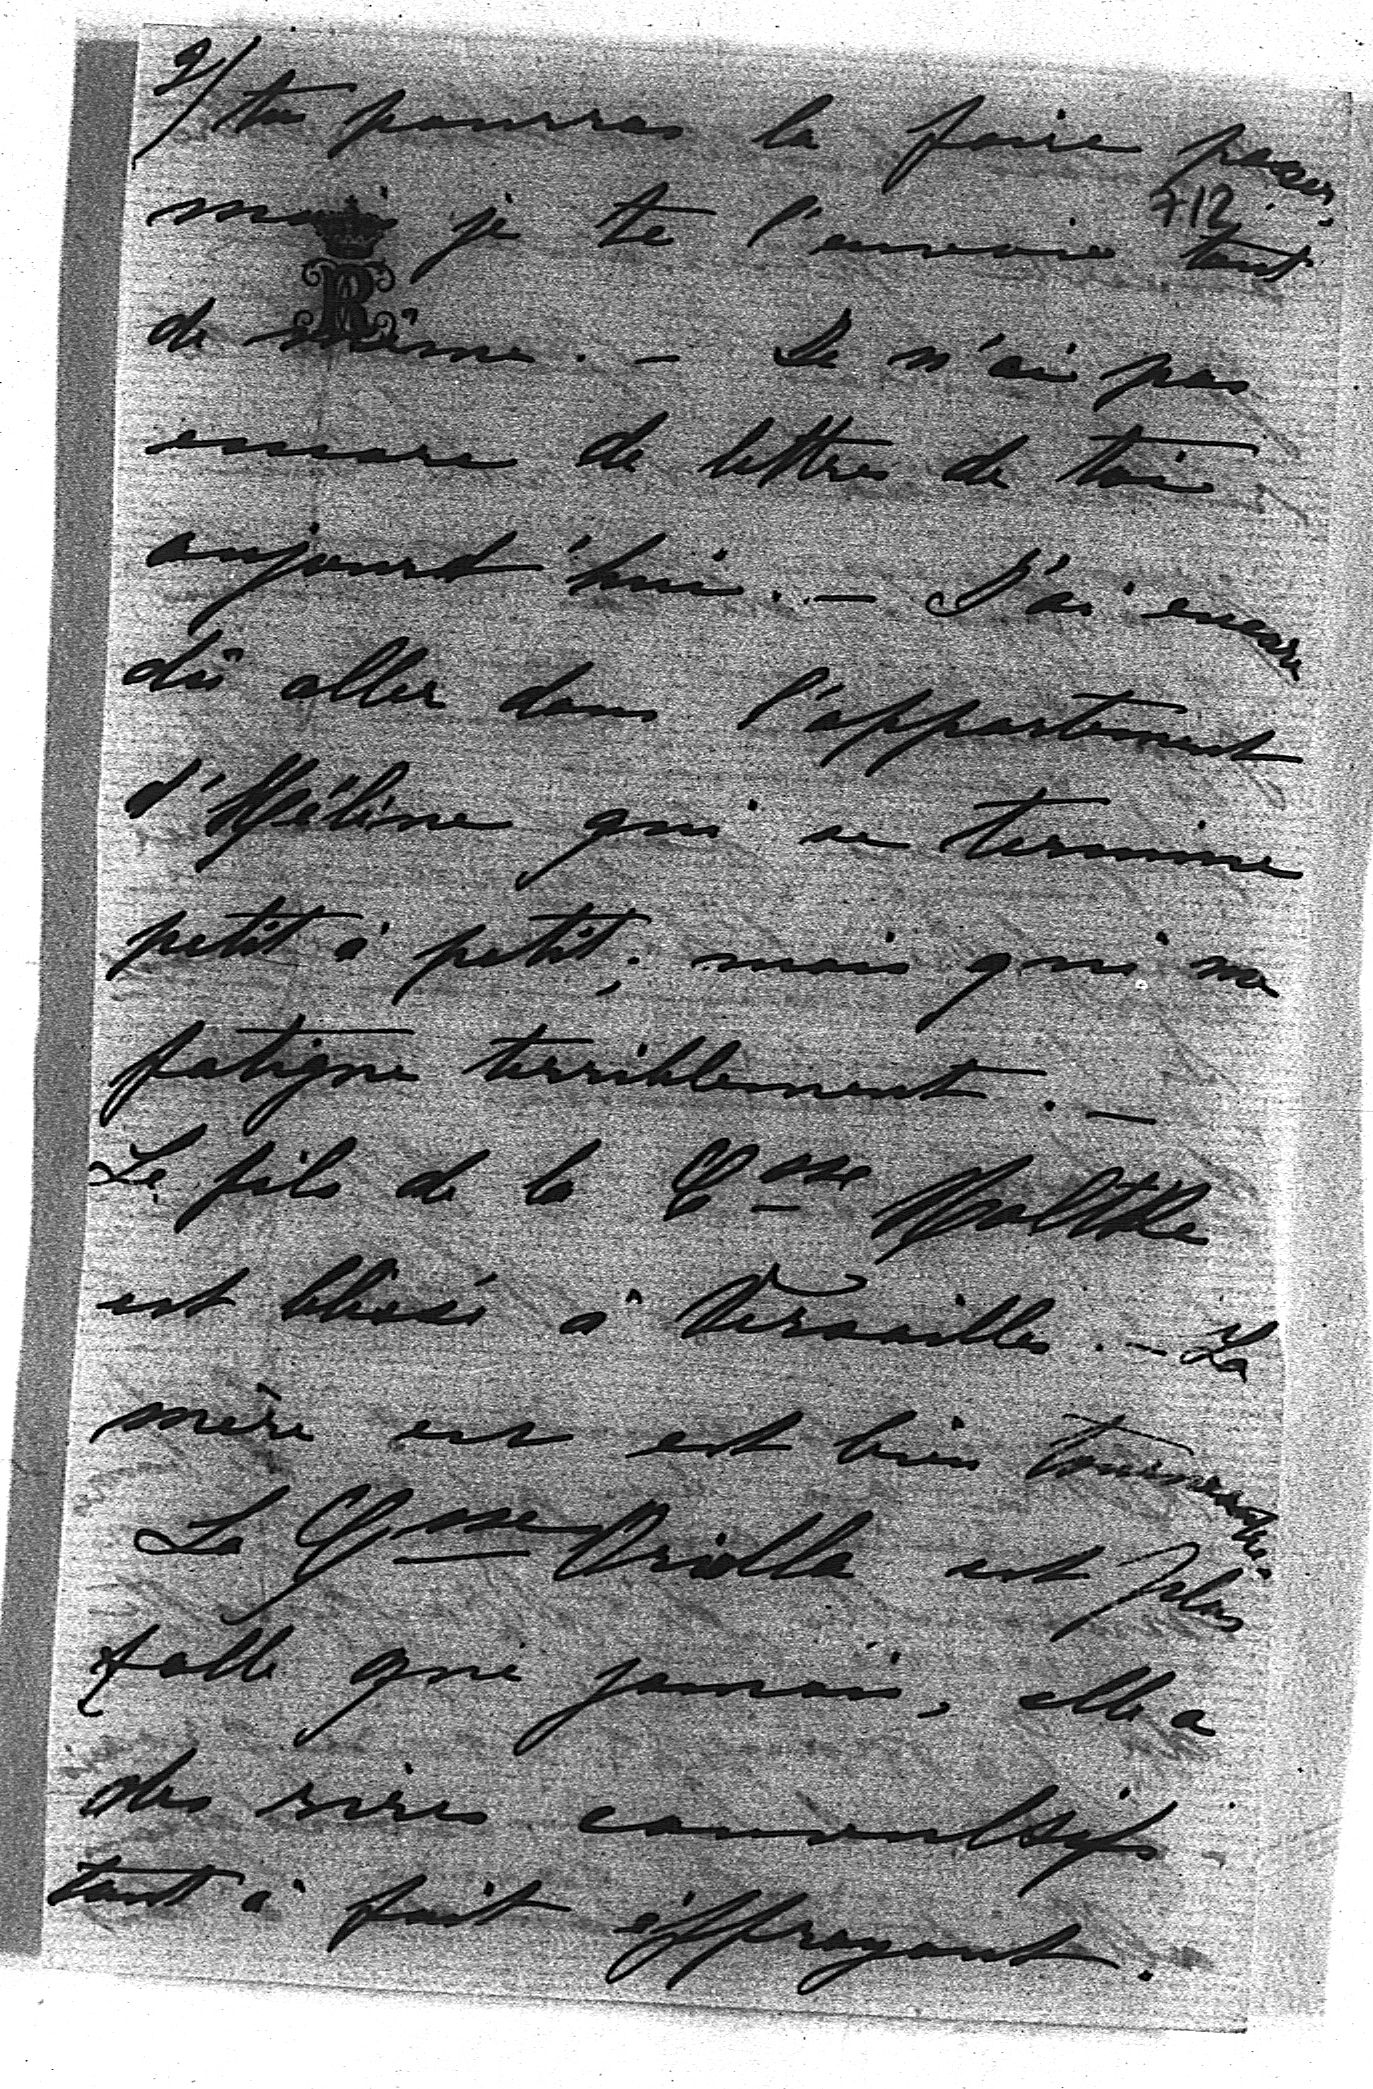 2/ tu pourras la faire passer,
712
mais je te l'envoie tout
R
de même. — Je n'ai pas
encore de lettres de toi
aujourd'hui. — J'ai encore
dû aller dans l'appartement
d'Hélène qui se termine
petit à petit, mais qui me
fatigue terriblement. —
Le fils de la Csse Moltke
est blessé à Versailles. — La
mère est est bien tourmentée
La Csse Vrielle est plus
folle que jamais, elle a
des rires convulsifs
tout à fait éffrayant.